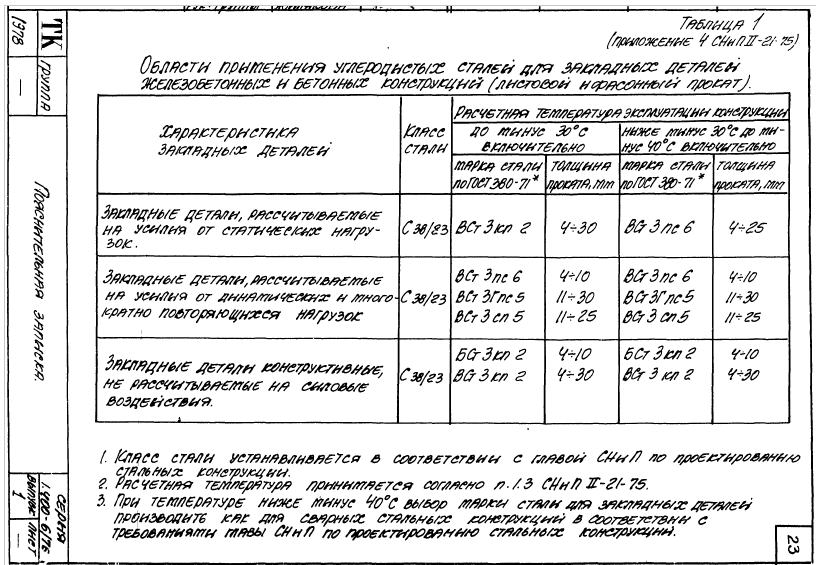 Таблица 1
(приложение 4 СНиП II-21-75)
Области применения углеродистых сталей для закладных деталей
железобетонных и бетонных конструкций (листовой и фасонный прокат).
Характеристика
закладных деталей
Класс
стали
Расчетная температура эксплуатации конструкции
до минус 30°С
включительно
ниже минус 30°С до ми-
нус 40°С включительно
марка стали
по ГОСТ 380-71*
толщина
проката, мм
марка стали
по ГОСТ 380-71*
толщина
проката, мм
Закладные детали, рассчитываемые
на усилия от статических нагру-
зок.
С 38/23
ВСт 3 кп 2
4÷30
ВСт 3 пс 6
4÷25
Закладные детали, рассчитываемые
на усилия от динамических и много-
кратно повторяющихся нагрузок
С 38/23
ВСт 3 пс 6
4÷10
ВСт 3 пс 6
4÷10
ВСт 3Гпс 5
11÷30
ВСт 3Гпс 5
11÷30
ВСт 3 сп 5
11÷25
ВСт 3 сп 5
11÷25
Закладные детали конструктивные,
не рассчитываемые на силовые
воздействия.
С 38/23
БСт 3 кп 2
4÷10
БСт 3 кп 2
4÷10
ВСт 3 кп 2
4÷30
ВСт 3 кп 2
4÷30
1. Класс стали устанавливается в соответствии с главой СНиП по проектированию
стальных конструкций.
2. Расчетная температура принимается согласно п. 1.3 СНиП II-21-75.
3. При температуре ниже минус 40°С выбор марки стали для закладных деталей
производить как для сварных стальных конструкций в соответствии с
требованиями главы СНиП по проектированию стальных конструкций.
ТК
1978
группа
—
Пояснительная записка.
серия
1.400-6/76
выпуск
1
лист
—
23